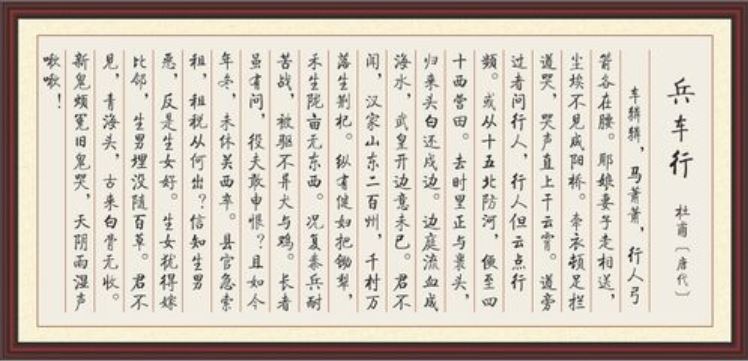 兵车行
杜甫〔唐代〕
车辚辚，马萧萧，行人弓
箭各在腰。耶娘妻子走相送，
尘埃不见咸阳桥。牵衣顿足拦
道哭，哭声直上干云霄。道旁
过者问行人，行人但云点行
频。或从十五北防河，便至四
十西营田。去时里正与裹头，
归来头白还戍边。边庭流血成
海水，武皇开边意未已。君不
闻，汉家山东二百州，千村万
落生荆杞。纵有健妇把锄犁，
禾生陇亩无东西。况复秦兵耐
苦战，被驱不异犬与鸡。长者
虽有问，役夫敢申恨？且如今
年冬，未休关西卒。县官急索
租，租税从何出？信知生男
恶，反是生女好。生女犹得嫁
比邻，生男埋没随百草。君不
见，青海头，古来白骨无收。
新鬼烦冤旧鬼哭，天阴雨湿声
啾啾！